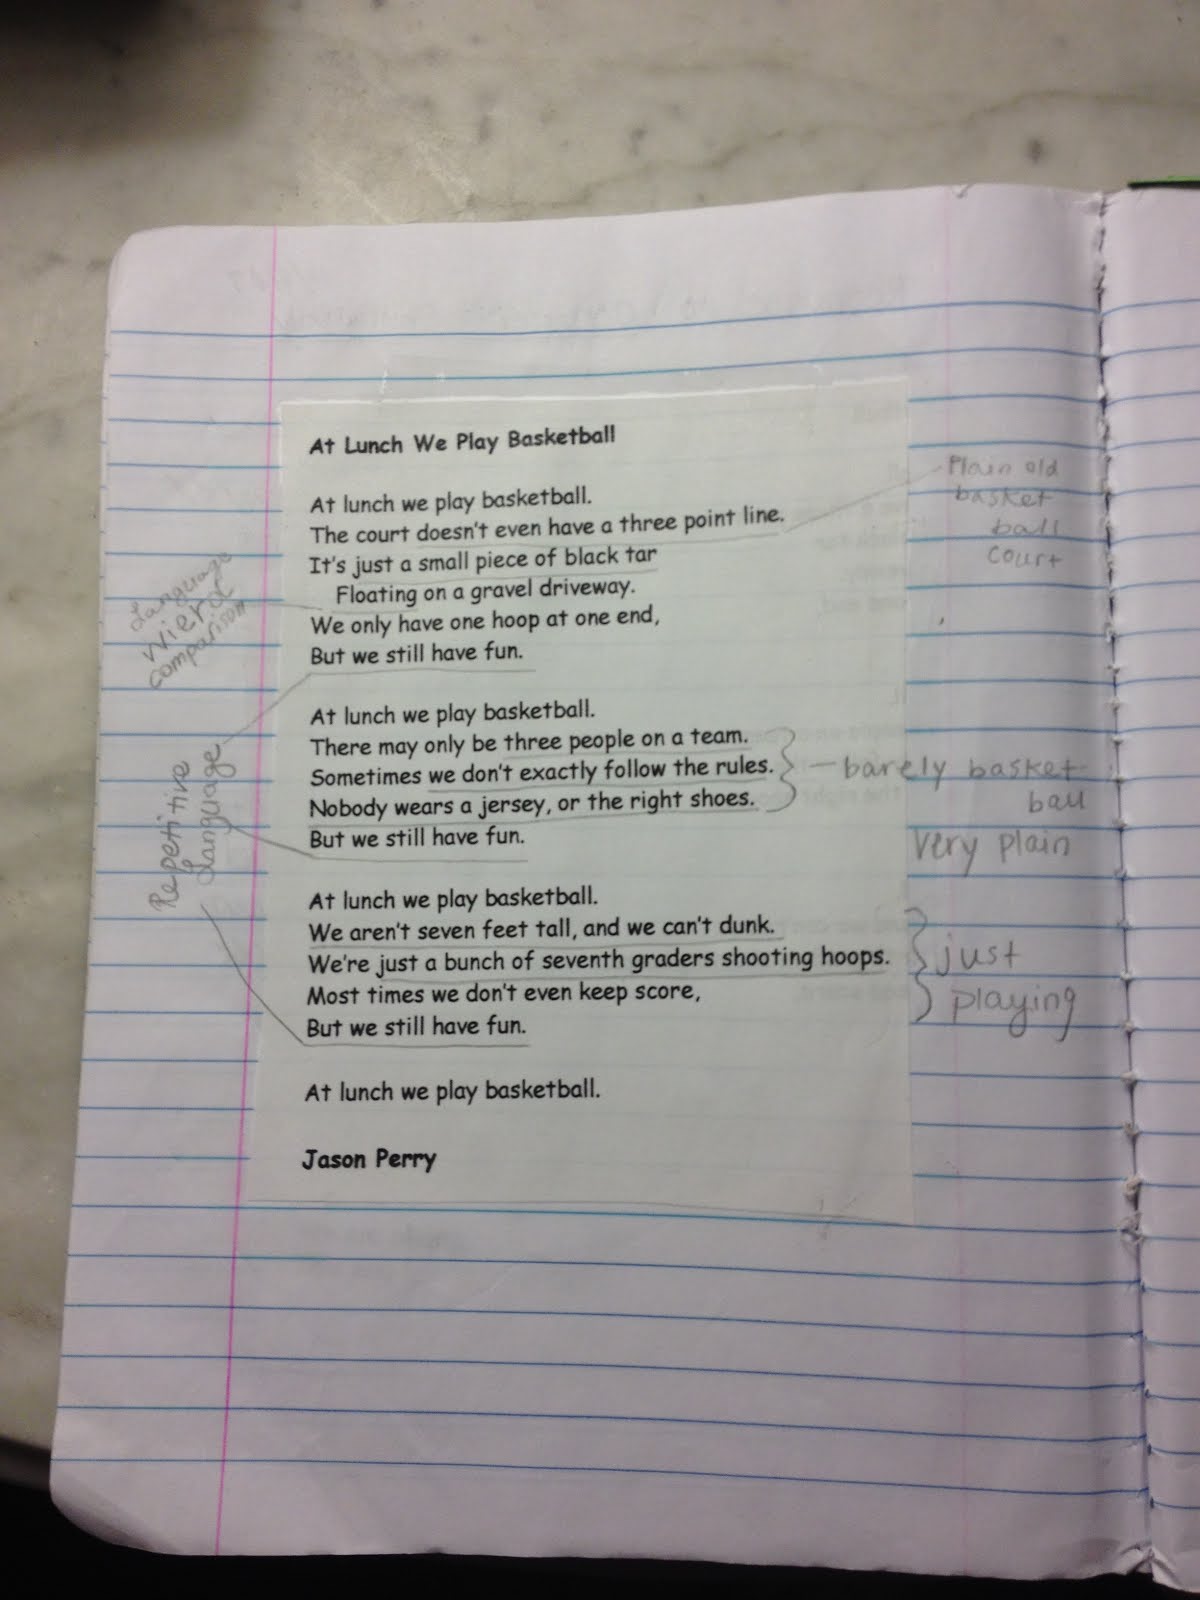 At Lunch We Play Basketball
At lunch we play basketball.
The court doesn't even have a three point line.
It's just a small piece of black tar
Floating on a gravel driveway.
We only have one hoop at one end,
But we still have fun.
At lunch we play basketball.
There may only be three people on a team.
Sometimes we don't exactly follow the rules.
Nobody wears a jersey, or the right shoes.
But we still have fun.
At lunch we play basketball.
We aren't seven feet tall, and we can't dunk.
We're just a bunch of seventh graders shooting hoops.
Most times we don't even keep score,
But we still have fun.
At lunch we play basketball.
Jason Perry
Plain old
basket
ball
court
Language
wierd
comparison
Repetitive
Language
barely basket
ball
very plain
just
playing